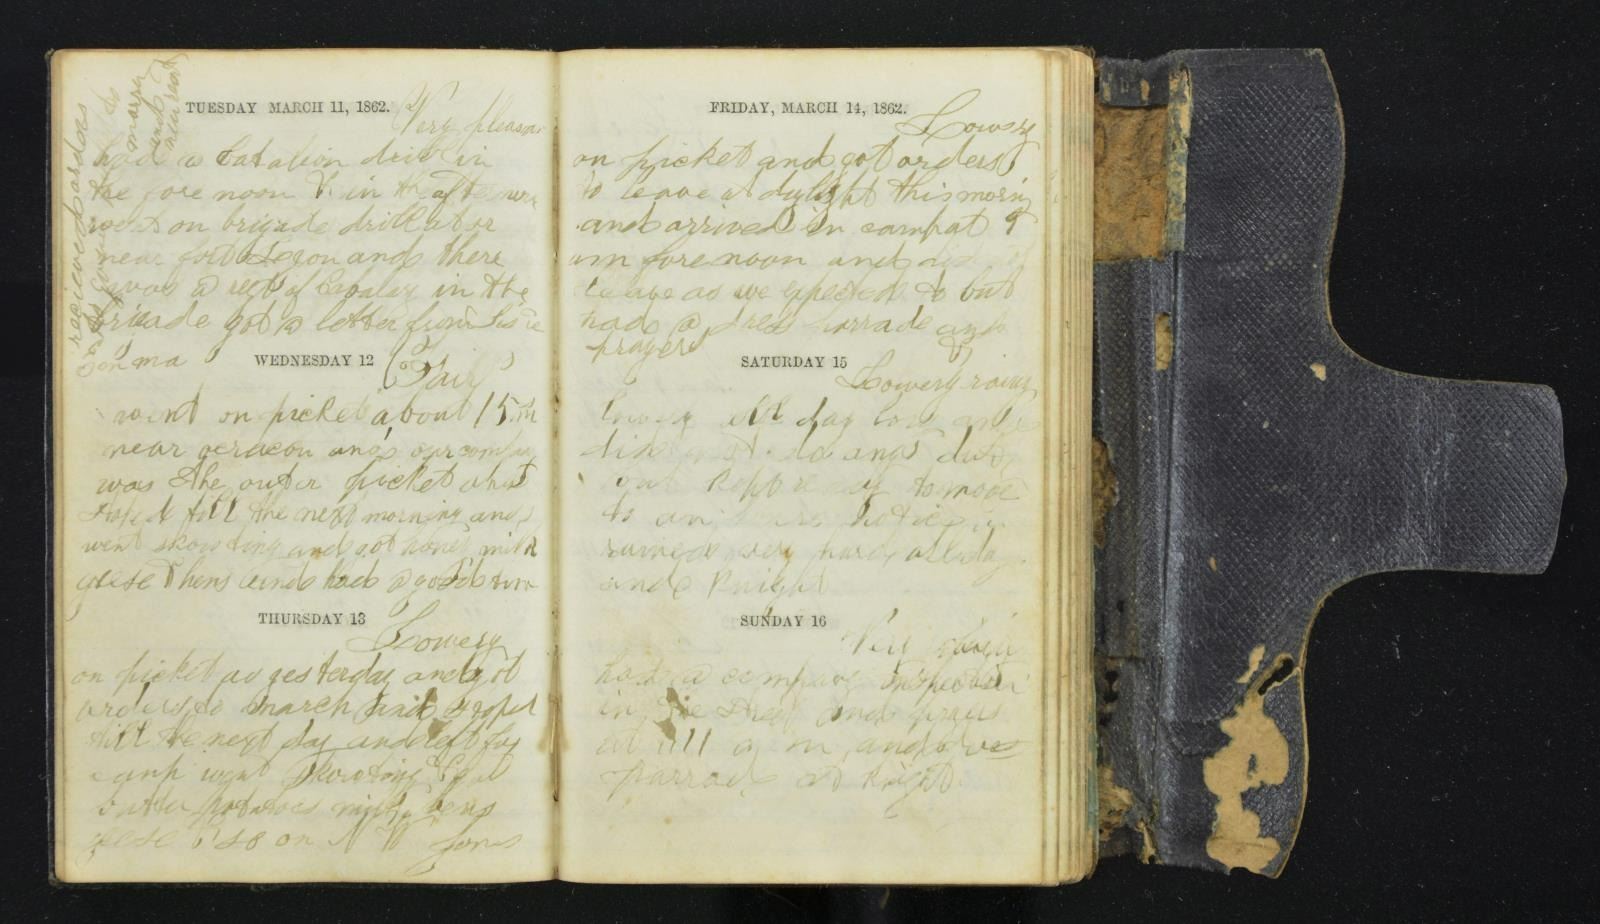 TUESDAY MARCH 11, 1862.
Very pleasan
had a Batalion drill in
the fore noon & in the afternoon
went on brigade drill
near fort and there
was a regt of Cavalry in the
bricade got a letter from
on ma
recieved ardas
to
march
and
WEDNESDAY 12
Fair
went on picket about 15 m
near and our company
was the outer picket
till the next morning and
went skouting and got honey milk
geese & hens and had a good time
THURSDAY 13
Lowery
on picket as yesterday and got
orders to march and
till the next day and left for
camp went skouting & got
butter potatoes milk hens
geese & so on N W Jones
FRIDAY, MARCH 14, 1862.
Lowery
on picket and got orders
to leave at dylight this morning
and arrived in camp at 9
in fore noon and did not
leave as we expected to but
had a dress parrade and
prayers
SATURDAY 15
Lowery rainy
all day and
did not do any duty
but kept ready to move
to an hours notice
rained very hard all day
and knight
SUNDAY 16
Very
had a company inspection
in the Street and
at 11 a m and dress
parrade at knight